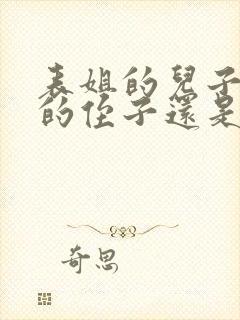 表姐的兒子
的侄子還是
奇思